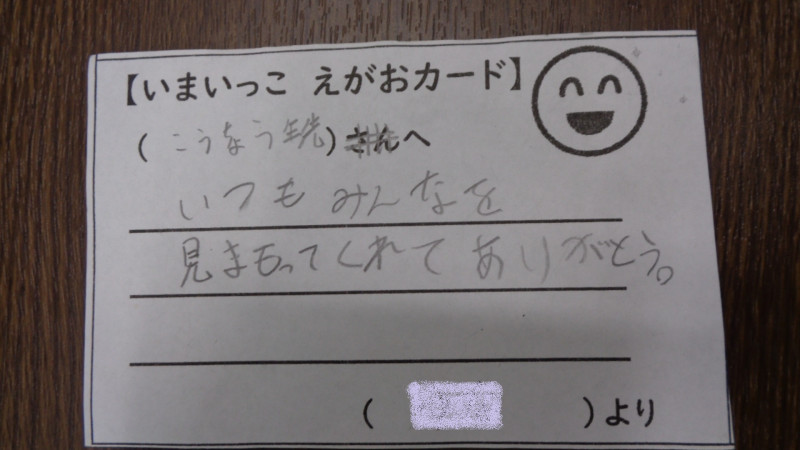 【いまいっこ えがおカード】
(こうちょう先生)さんへ
いつもみんなを
見まもってくれてありがとう。
( )より